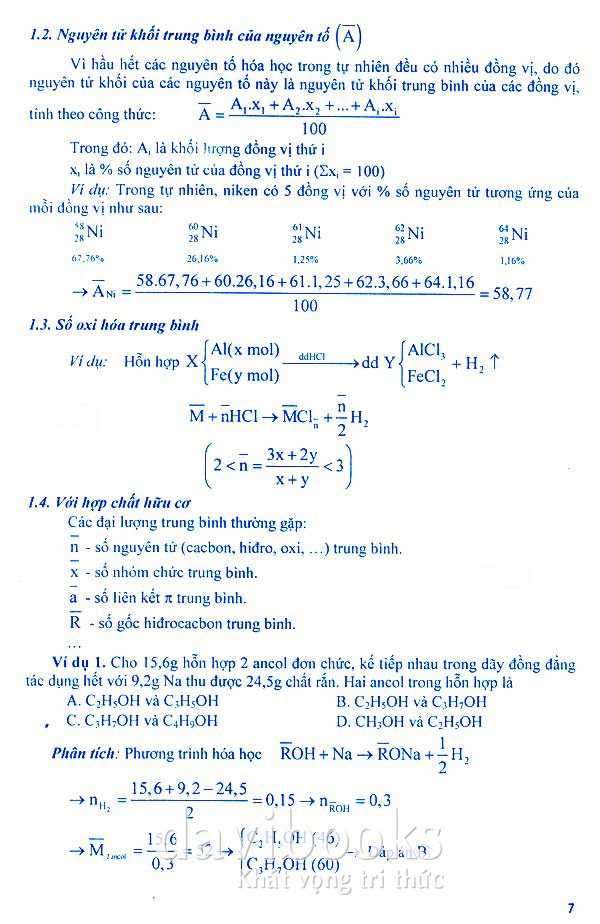 1.2. Nguyên tử khối trung bình của nguyên tố (A̅)
Vì hầu hết các nguyên tố hóa học trong tự nhiên đều có nhiều đồng vị, do đó
nguyên tử khối của các nguyên tố này là nguyên tử khối trung bình của các đồng vị,
tính theo công thức: A̅ = (A₁.x₁ + A₂.x₂ + ... + Aᵢ.xᵢ)/100
Trong đó: Aᵢ là khối lượng đồng vị thứ i
xᵢ là % số nguyên tử của đồng vị thứ i (Σxᵢ = 100)
Ví dụ: Trong tự nhiên, niken có 5 đồng vị với % số nguyên tử tương ứng của
mỗi đồng vị như sau:
⁵⁸₂₈Ni ⁶⁰₂₈Ni ⁶¹₂₈Ni ⁶²₂₈Ni ⁶⁴₂₈Ni
67,76% 26,16% 1,25% 3,66% 1,16%
→ A̅Ni = (58.67,76 + 60.26,16 + 61.1,25 + 62.3,66 + 64.1,16)/100 = 58,77
1.3. Số oxi hóa trung bình
Ví dụ: Hỗn hợp X {Al(x mol) Fe(y mol) —ddHCl→ dd Y {AlCl₃ FeCl₂ + H₂ ↑
M̅ + n̅HCl → M̅Cln̅ + n̅/2 H₂
(2 < n̅ = (3x + 2y)/(x + y) < 3)
1.4. Với hợp chất hữu cơ
Các đại lượng trung bình thường gặp:
n̅ - số nguyên tử (cacbon, hiđro, oxi, ...) trung bình.
x̅ - số nhóm chức trung bình.
a̅ - số liên kết π trung bình.
R̅ - số gốc hiđrocacbon trung bình.
...
Ví dụ 1. Cho 15,6g hỗn hợp 2 ancol đơn chức, kế tiếp nhau trong dãy đồng đẳng
tác dụng hết với 9,2g Na thu được 24,5g chất rắn. Hai ancol trong hỗn hợp là
A. C₂H₅OH và C₃H₅OH B. C₂H₅OH và C₃H₇OH
C. C₃H₇OH và C₄H₉OH D. CH₃OH và C₂H₅OH
Phân tích: Phương trình hóa học R̅OH + Na → R̅ONa + 1/2 H₂
→ nH₂ = (15,6 + 9,2 − 24,5)/2 = 0,15 → nR̅OH = 0,3
→ M̅ancol = 15,6/0,3 = 52 → {C₂H₅OH (46) C₃H₇OH (60) → Đáp án B
davibooks
Khát vọng tri thức
7